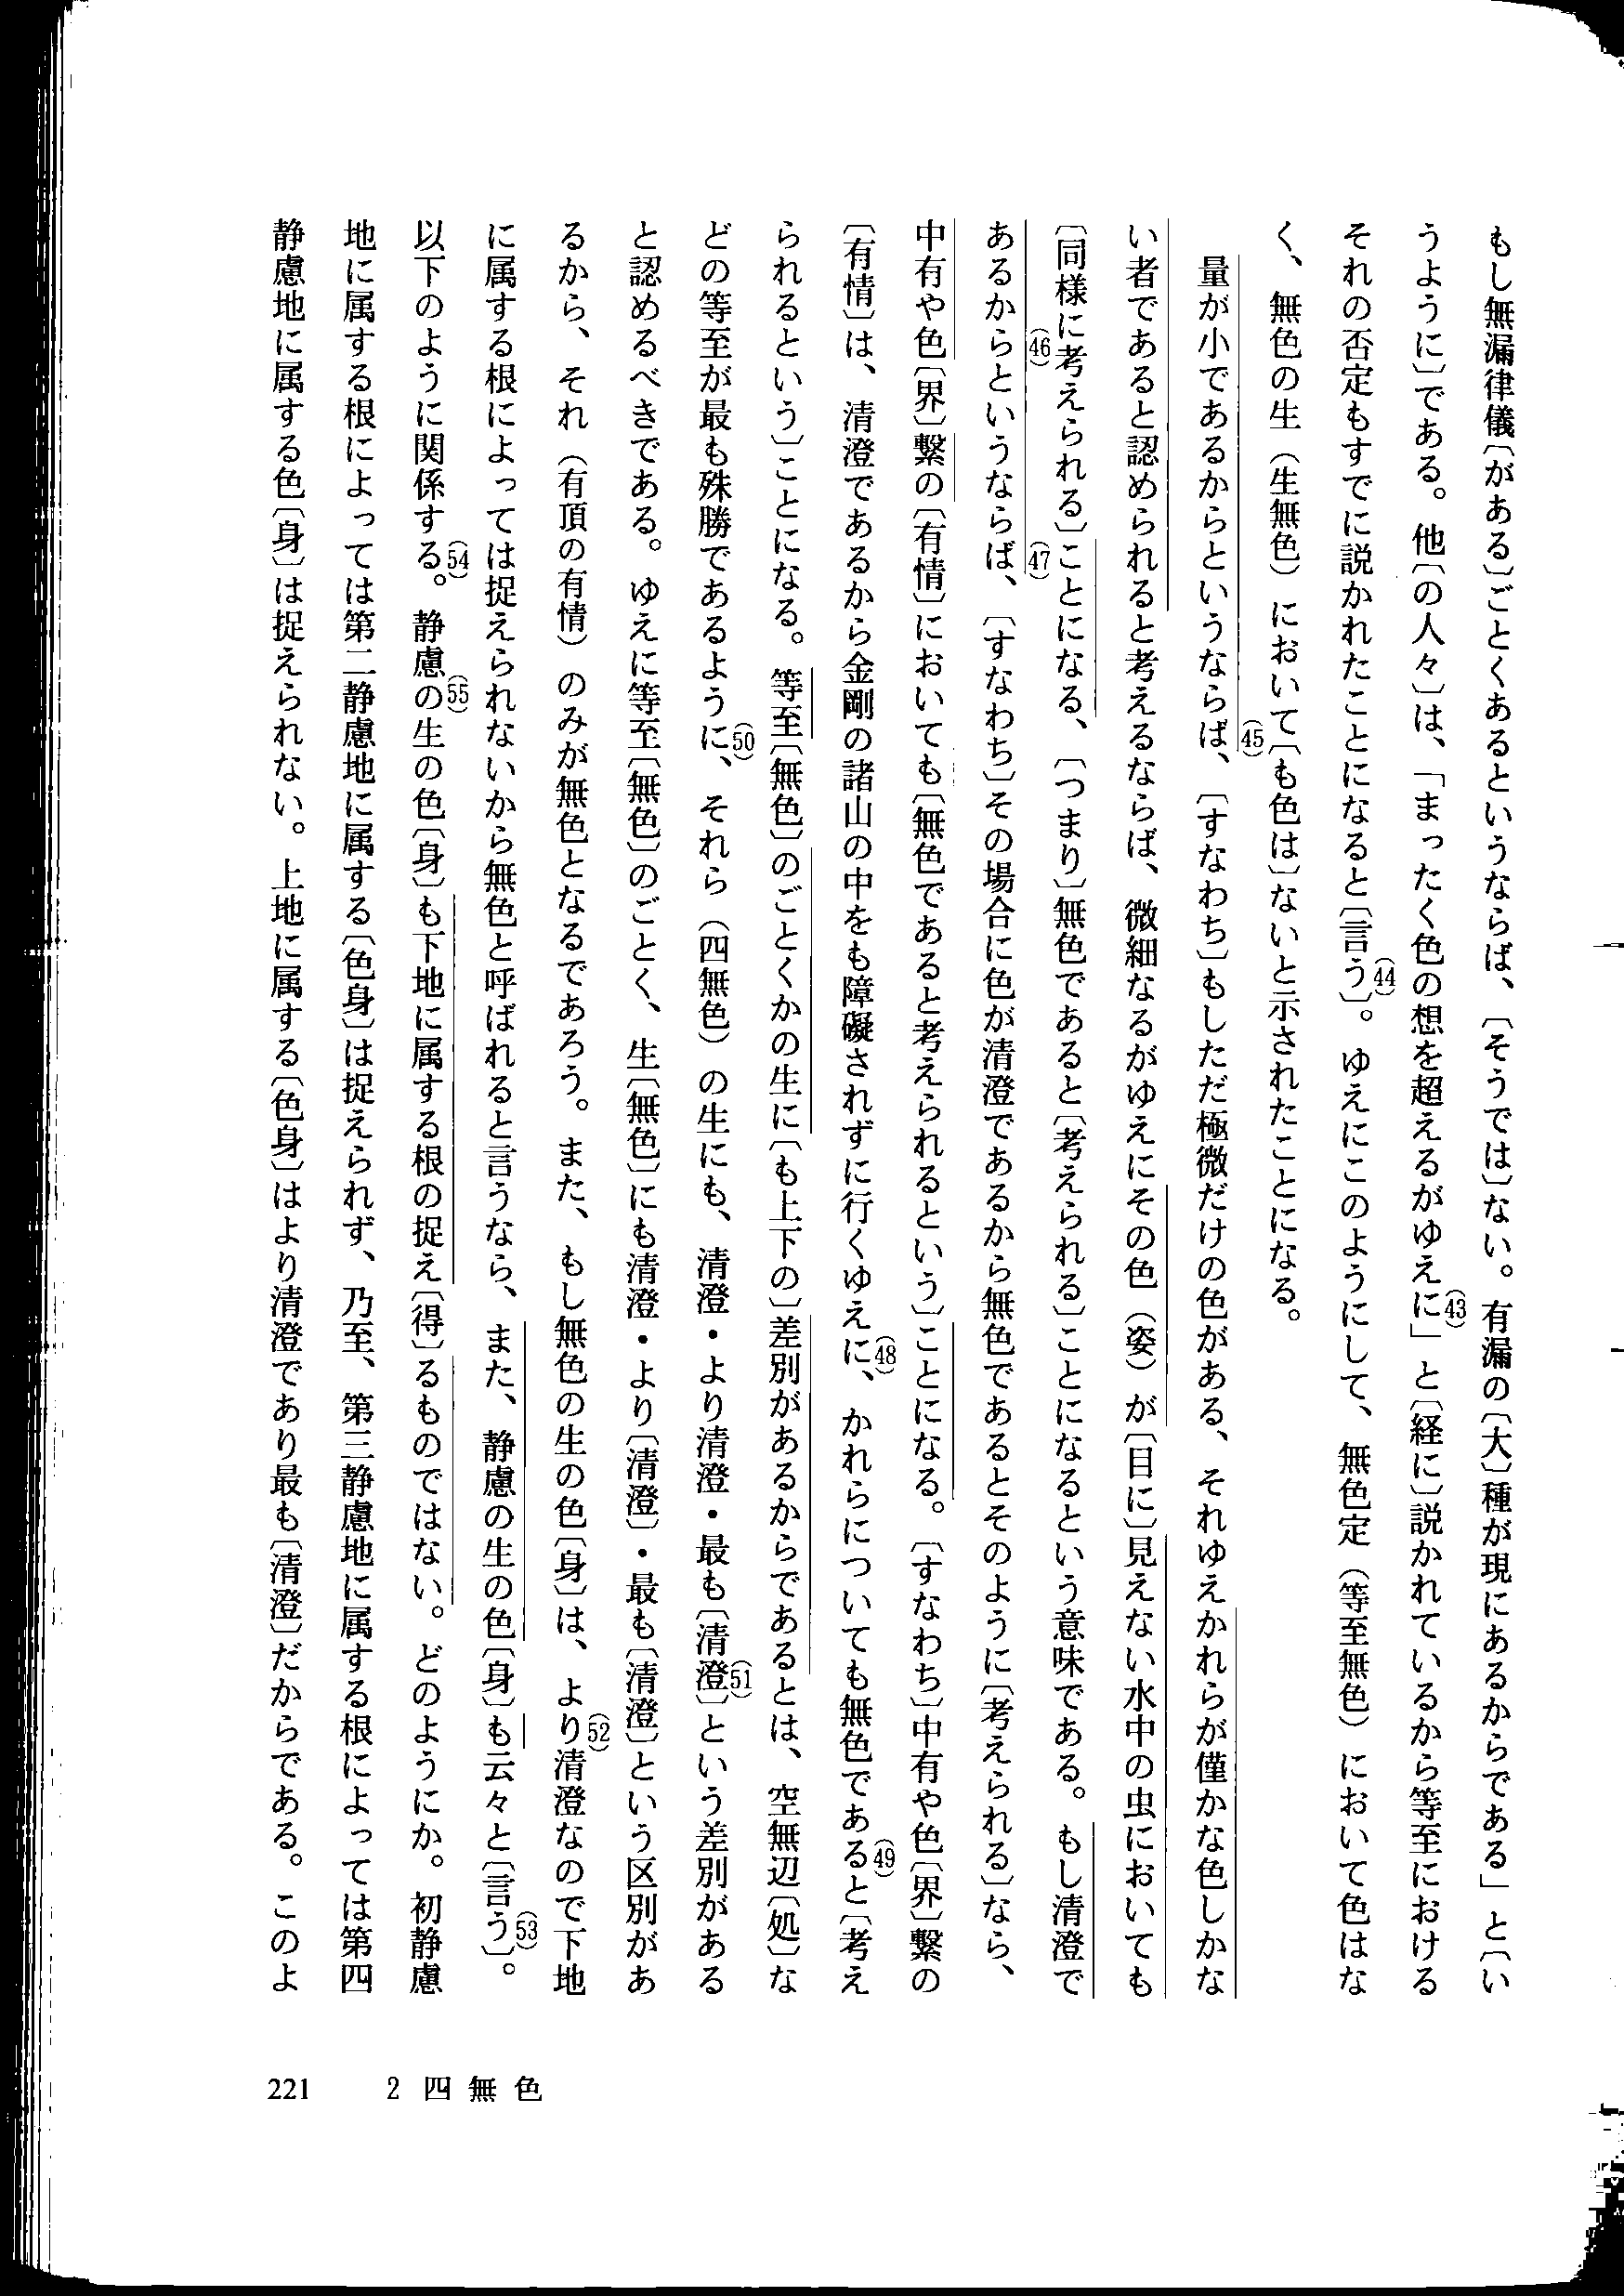 もし無漏律儀〔がある〕ごとくあるというならば、〔そうでは〕ない。有漏の〔大〕種が現にあるからである」と〔い
うように〕である。他〔の人々〕は、「まったく色の想を超えるがゆえに(43)」と〔経に〕説かれているから等至における
それの否定もすでに説かれたことになると〔言う(44)〕。ゆえにこのようにして、無色定（等至無色）において色はな
く、無色の生（生無色）において〔も色は〕ないと示されたことになる。
量が小であるからというならば(45)、〔すなわち〕もしただ極微だけの色がある、それゆえかれらが僅かな色しかな
い者であると認められると考えるならば、微細なるがゆえにその色（姿）が〔目に〕見えない水中の虫においても
〔同様に(46)考えられる〕(47)ことになる、〔つまり〕無色であると〔考えられる〕ことになるという意味である。もし清澄で
あるからというならば、〔すなわち〕その場合に色が清澄であるから無色であるとそのように〔考えられる〕なら、
中有や色〔界〕繋の〔有情〕においても〔無色であると考えられるという〕ことになる。〔すなわち〕中有や色〔界〕繋の
〔有情〕は、清澄であるから金剛の諸山の中をも障礙されずに行くゆえに(48)、かれらについても無色である(49)と〔考え
られるという〕ことになる。等至〔無色〕のごとくかの生に〔も上下の〕差別があるからであるとは、空無辺〔処〕な
どの等至が最も殊勝であるように(50)、それら（四無色）の生にも、清澄・より清澄・最も〔清澄(51)〕という差別がある
と認めるべきである。ゆえに等至〔無色〕のごとく、生〔無色〕にも清澄・より〔清澄〕・最も〔清澄〕という区別があ
るから、それ（有頂の有情）のみが無色となるであろう。また、もし無色の生の色〔身〕は、より(52)清澄なので下地
に属する根によっては捉えられないから無色と呼ばれると言うなら、また、静慮の生の色〔身〕も云々と〔言う(53)〕。
以下のように関係する(54)。静慮の(55)生の色〔身〕も下地に属する根の捉え〔得〕るものではない。どのようにか。初静慮
地に属する根によっては第二静慮地に属する〔色身〕は捉えられず、乃至、第三静慮地に属する根によっては第四
静慮地に属する色〔身〕は捉えられない。上地に属する〔色身〕はより清澄であり最も〔清澄〕だからである。このよ
221　2 四無色